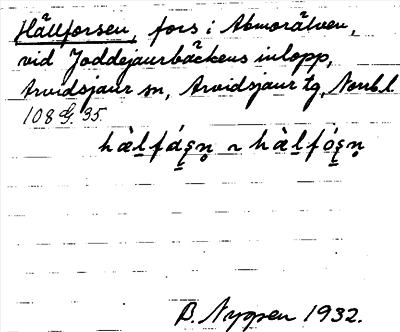 Hällforsen, fors i Abmorälven,
vid Joddejaurbäckens inlopp,
Arvidsjaur sn, Arvidsjaur tg, Norrb.l.
108 G. 35.
B. Nygren 1932.